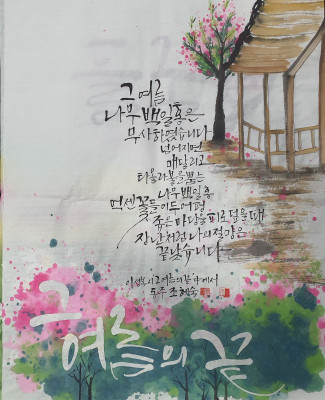 그 여름
나무 백일홍은
무사하였습니다
넘어지면
매달리고
타올라 불을 뿜는
나무 백일홍
억센 꽃들이 두어 평
좁은 마당을 피로 덮을 때
장난처럼 나의 절망은
끝났습니다
이성복 시 그 여름의 끝 中에서
그 여름의 끝